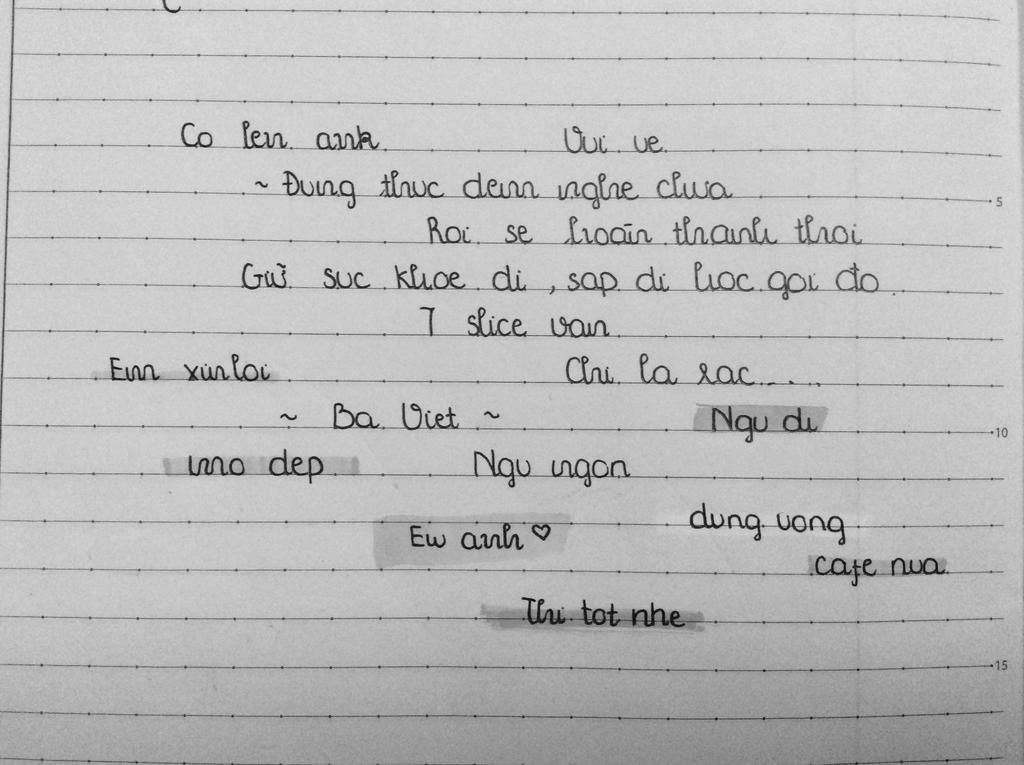 Co len anh Vui ve
~ Đung thuc dem nghe chua
Roi se hoan thanh thoi
Giữ suc khoe di, sap di hoc goi do
7 slice van
Em xin loi Chi la rac....
~ Ba Viet ~ Ngu di
mo dep Ngu ngon
dung uong
Ew anh ♡
cafe nua
Thi tot nhe
5
10
15